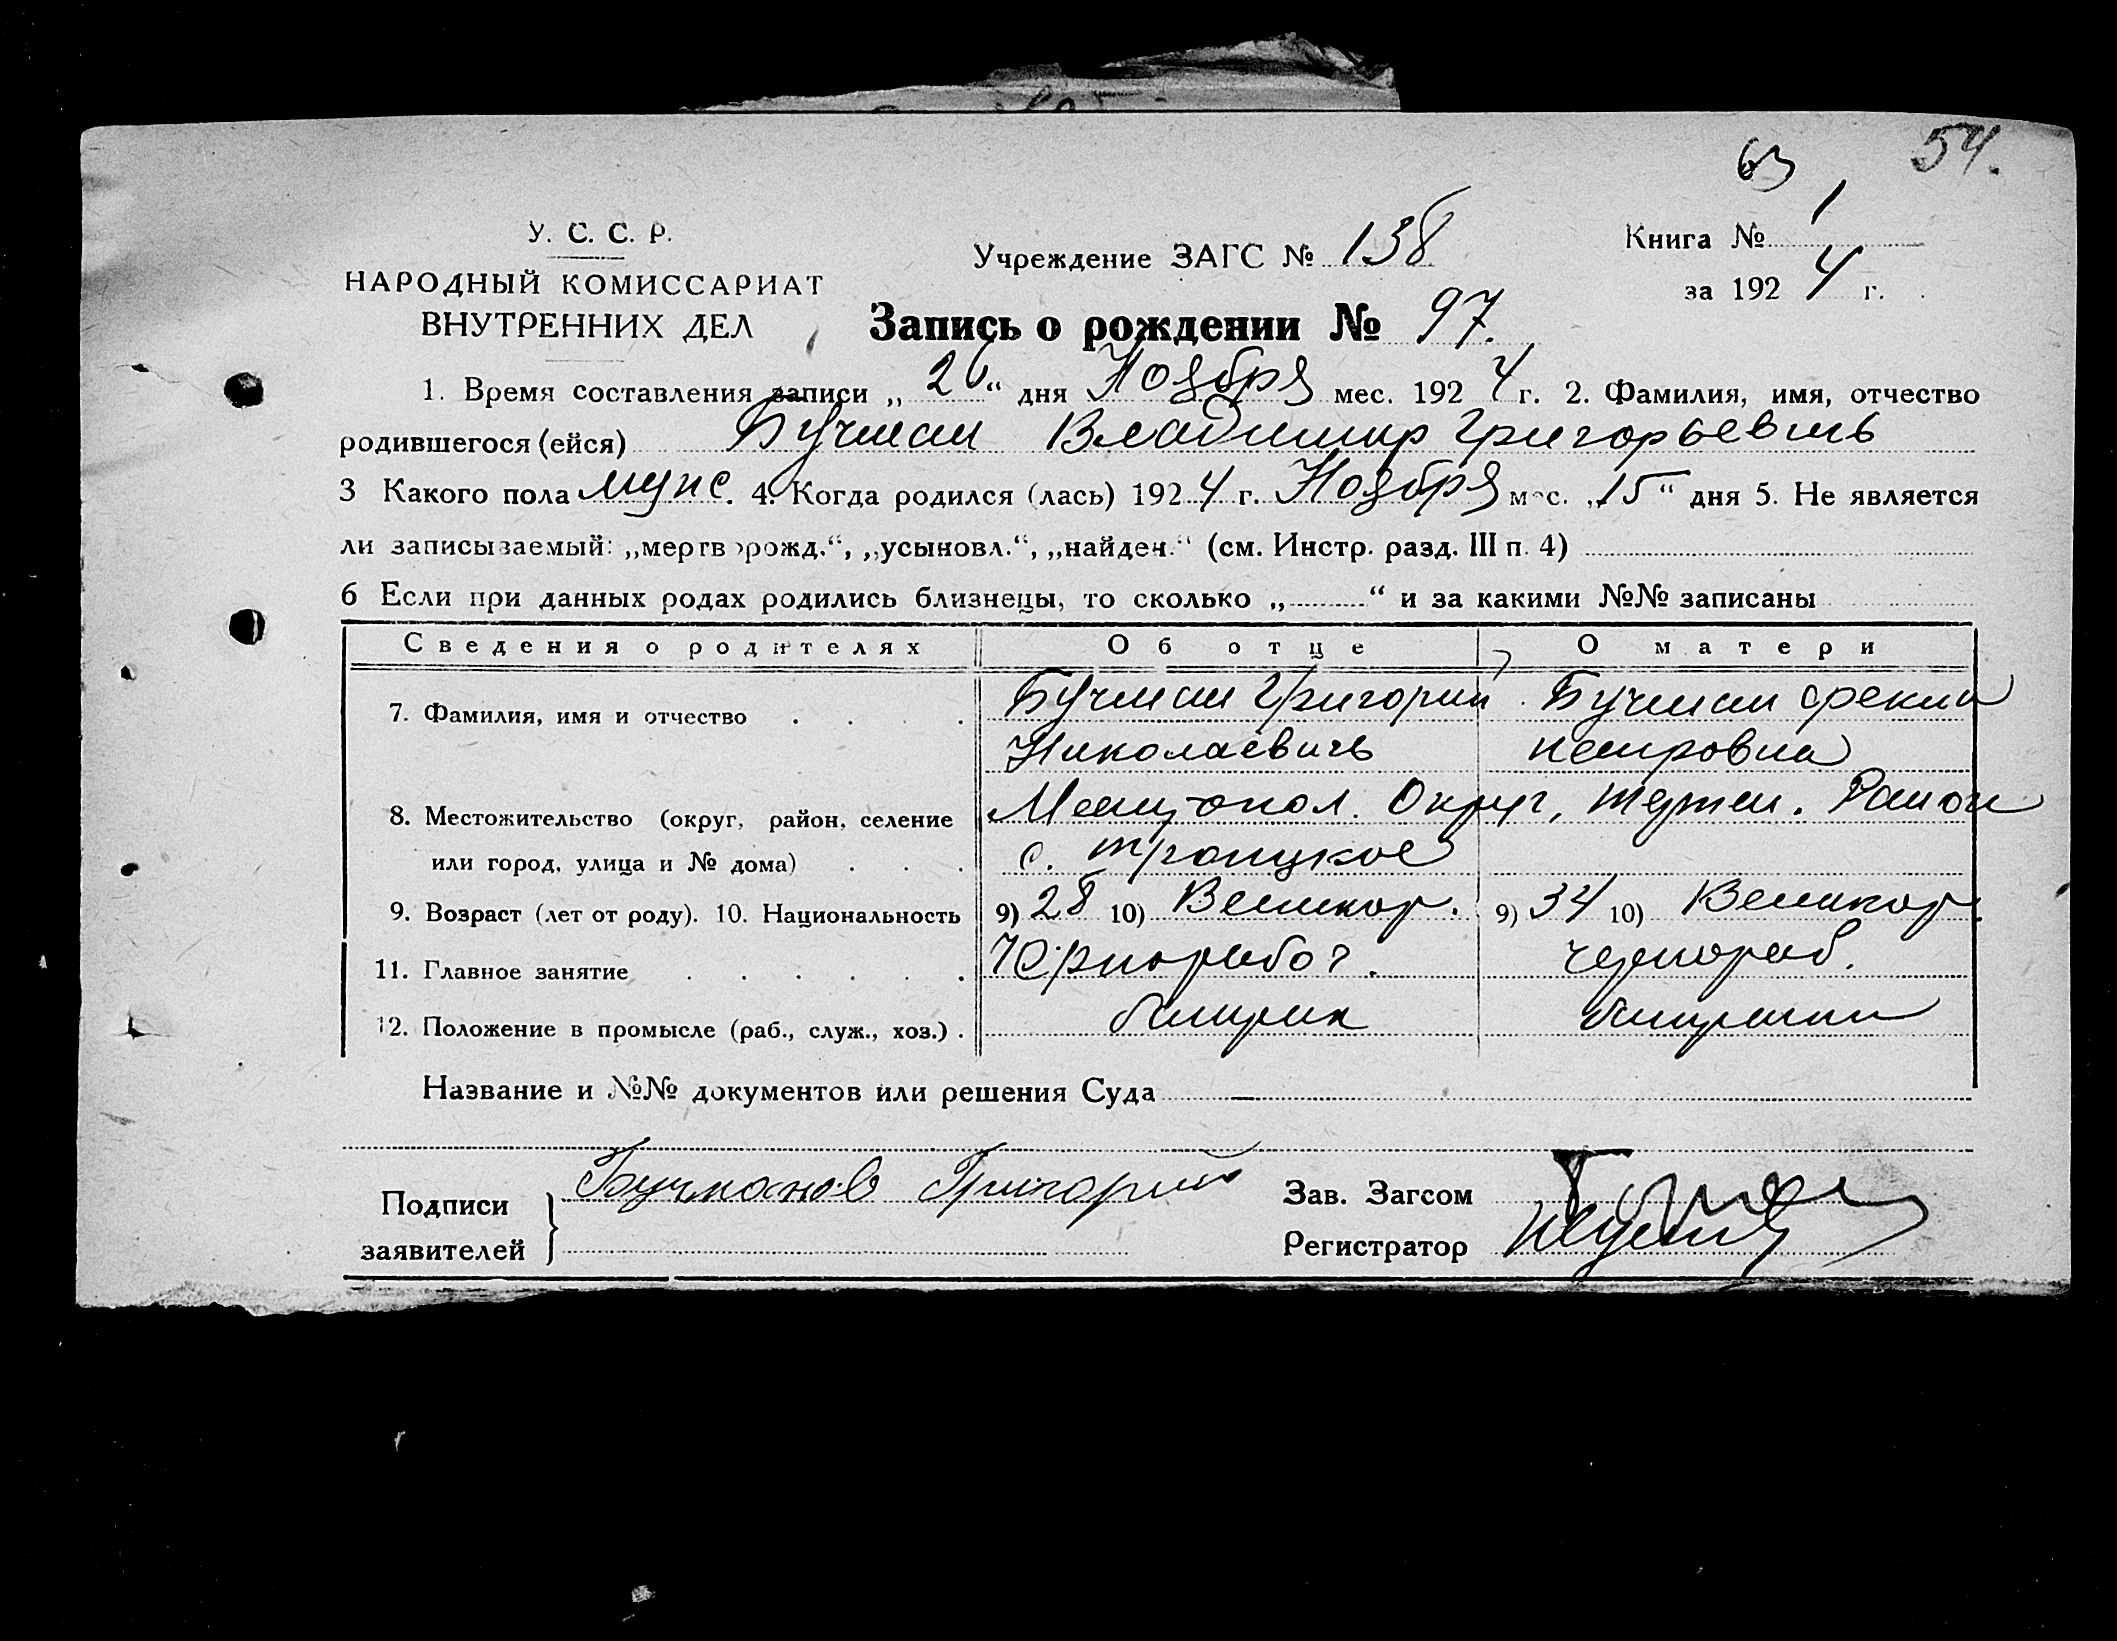 63 54.
У. С. С. Р.
НАРОДНЫЙ КОМИССАРИАТ
ВНУТРЕННИХ ДЕЛ
Учреждение ЗАГС № 138
Книга № 1
за 1924 г.
Запись о рождении № 97.
1. Время составления записи „26“ дня Ноября мес. 1924 г. 2. Фамилия, имя, отчество
родившегося (ейся) Бучман Владимир Григорьевичь
3 Какого пола мужс. 4. Когда родился (лась) 1924 г. Ноября мес. „15“ дня 5. Не является
ли записываемый: „мертворожд.“, „усыновл.“, „найден.“ (см. Инстр. разд. III п. 4)
6 Если при данных родах родились близнецы, то сколько „ “ и за какими №№ записаны
Сведения о родителях Об отце О матери
7. Фамилия, имя и отчество Бучман Григорий Бучман Фекла
Николаевичь петровна
8. Местожительство (округ, район, селение Округ, Район
или город, улица и № дома) с. троицкое
9. Возраст (лет от роду). 10. Национальность 9) 28 10) Великор. 9) 34 10) Великор.
11. Главное занятие Чернорабоч. чернораб.
12. Положение в промысле (раб., служ., хоз.) батрак батрачка
Название и №№ документов или решения Суда
Подписи Бучманов Григорий Зав. Загсом
заявителей Регистратор